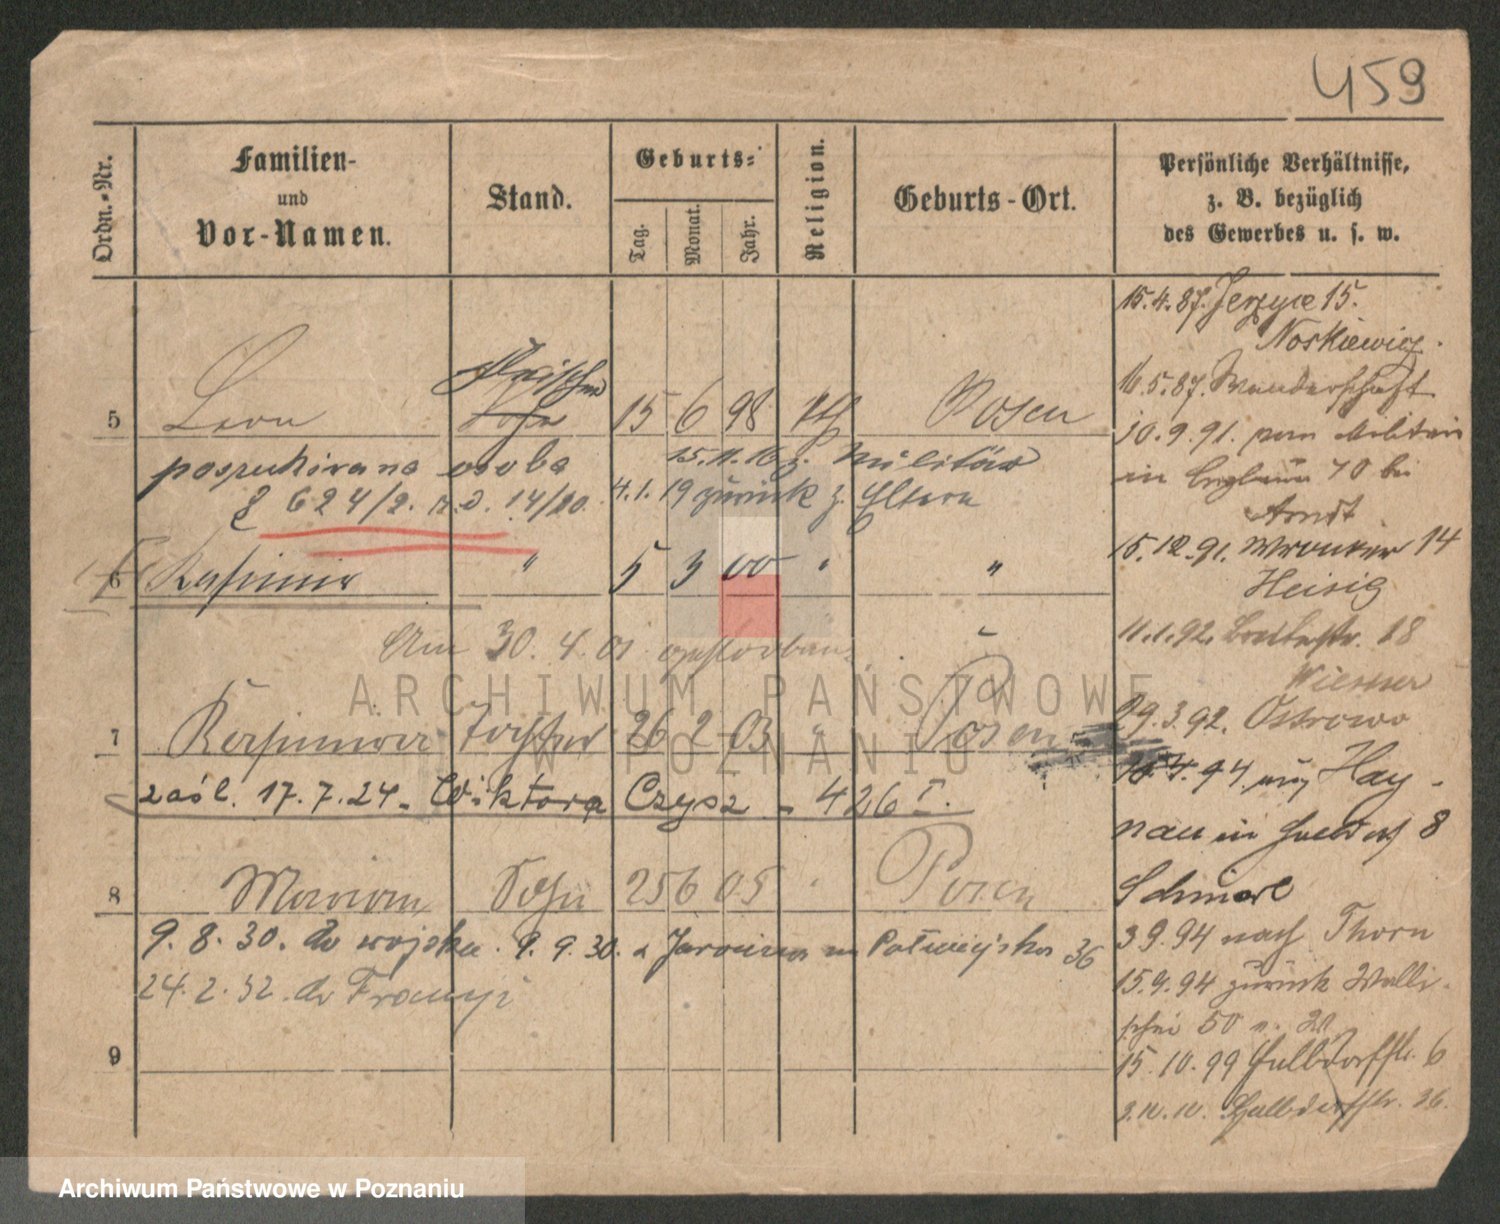 459
Ordn.-Nr.
Familien-
und
Vor-Namen.
Stand.
Geburts-
Tag.
Monat.
Jahr.
Religion.
Geburts-Ort.
Persönliche Verhältnisse,
z. B. bezüglich
des Gewerbes u. s. w.
5 Leon 15 6 98 kth Posen
poszukiwana osoba 15.11.16 z. Militär
624/2. 14/20. 4.1.19 zurück z. Eltern
6 Kasimir " 5 3 00 " "
Am 30.4.01 gestorben.
7 Kasimira Tochter 26 2 03 " Posen
zaśl. 17.7.24 - Wiktora Czysz - 426 I.
8 Maryan Sohn 25 6 05 " Posen
9.8.30. do wojska. 9.9.30. z Jarocina 36
24.2.32. do Francyi
9
15.4.87. Jerzyce 15.
Noskiewicz.
16.5.87. Wanderschaft
10.9.91. vom Militair
in 70 bei
Arndt
15.12.91. Wronker 14
Heisig
11.1.92. Breitestr. 18
Wiesner
29.3.92. Ostrowo
4.94 Hay-
nau in 8
3 9.94 nach Thorn
15.9.94 zurück Walli-
schei 50
15.10.99 Halbdorfstr. 6
Halbdorfstr. 36.
ARCHIWUM PAŃSTWOWE
W POZNANIU
Archiwum Państwowe w Poznaniu